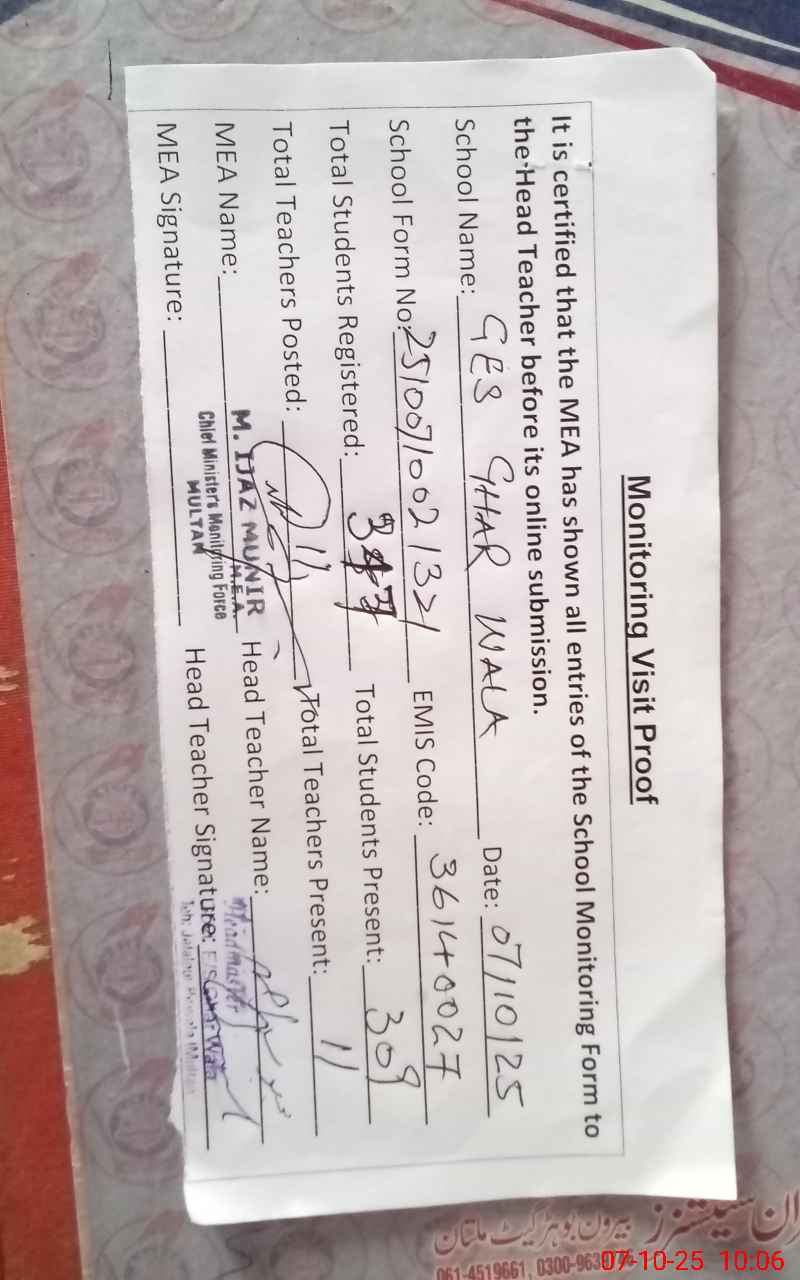 Monitoring Visit Proof
It is certified that the MEA has shown all entries of the School Monitoring Form to
the Head Teacher before its online submission.
School Name: GES GHAR WALA Date: 07/10/25
School Form No: EMIS Code: 36140027
Total Students Registered: Total Students Present: 309
Total Teachers Posted: 11 Total Teachers Present: 11
MEA Name: M. IJAZ MUNIR Head Teacher Name:
M.E.A.
Chief Minister's Monitoring Force
MULTAN
MEA Signature: Head Teacher Signature:
Headmaster
بیرون بوہڑ گیٹ ملتان
061-4519661, 0300-963
07-10-25 10:06